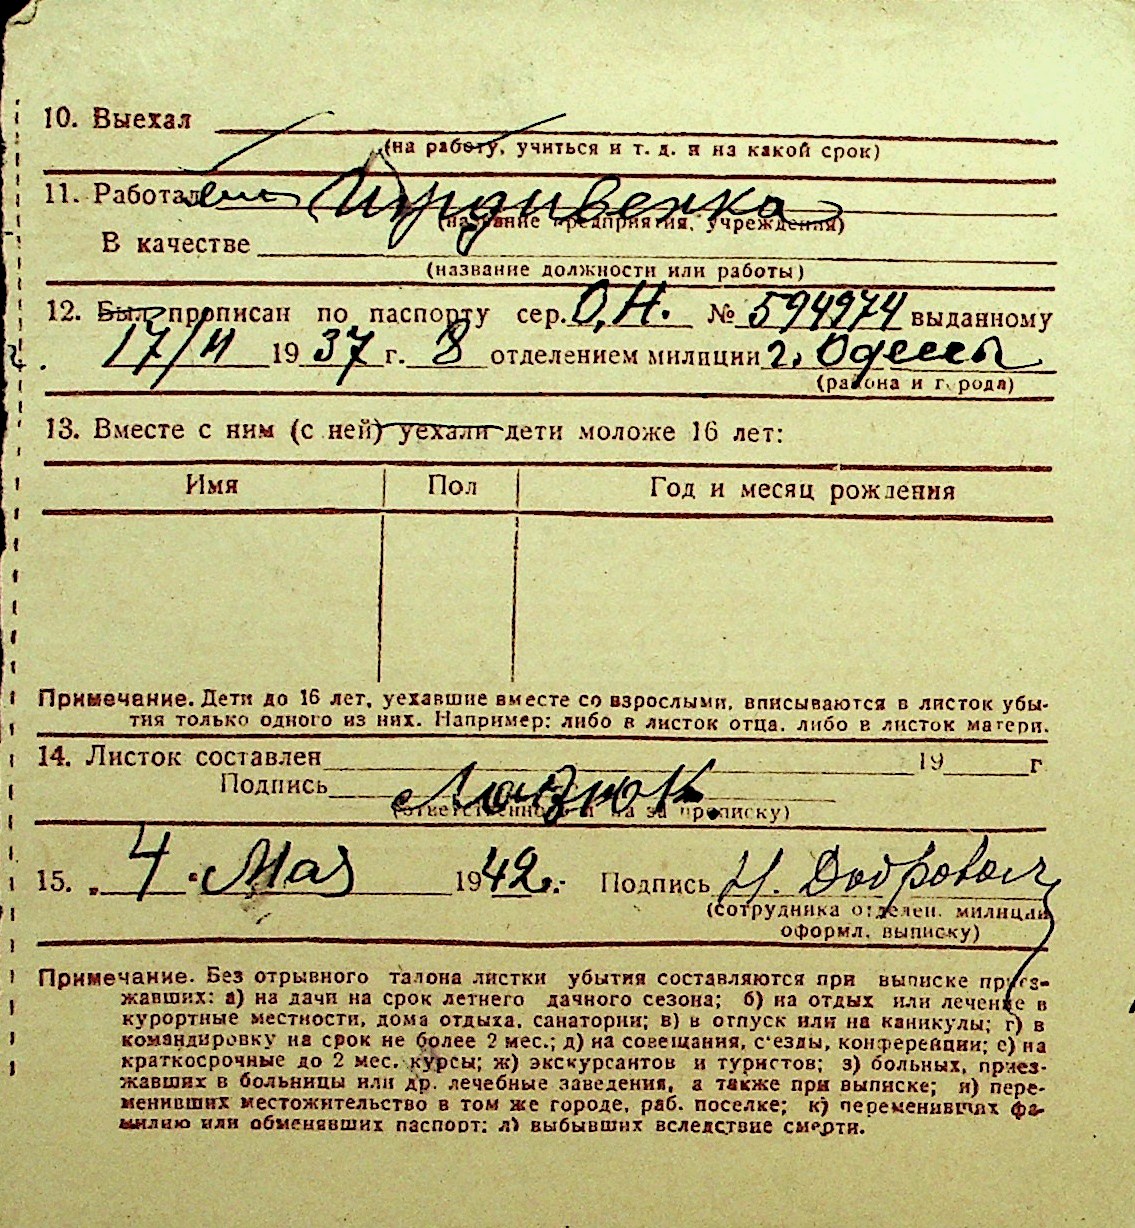 10. Выехал
(на работу, учиться и т. д. и на какой срок)
11. Работал Иждивенка
(название предприятия, учреждения)
В качестве
(название должности или работы)
12. Был прописан по паспорту сер. О.Н. № 594974 выданному
17/II 19 37 г. 8 отделением милиции г. Одессы
(района и города)
13. Вместе с ним (с ней) уехали дети моложе 16 лет:
Имя Пол Год и месяц рождения
Примечание. Дети до 16 лет, уехавшие вместе со взрослыми, вписываются в листок убы-
тия только одного из них. Например: либо в листок отца, либо в листок матери.
14. Листок составлен 19 г
Подпись
(ответственного лица за прописку)
15. „4" Мая 1942 г. Подпись
(сотрудника отделен. милиции
оформл. выписку)
Примечание. Без отрывного талона листки убытия составляются при выписке приез-
жавших: а) на дачи на срок летнего дачного сезона; б) на отдых или лечение в
курортные местности, дома отдыха, санатории; в) в отпуск или на каникулы; г) в
командировку на срок не более 2 мес.; д) на совещания, с'езды, конференции; е) на
краткосрочные до 2 мес. курсы; ж) экскурсантов и туристов; з) больных, приез-
жавших в больницы или др. лечебные заведения, а также при выписке; и) пере-
менивших местожительство в том же городе, раб. поселке; к) переменивших фа-
милию или обменявших паспорт; л) выбывших вследствие смерти.